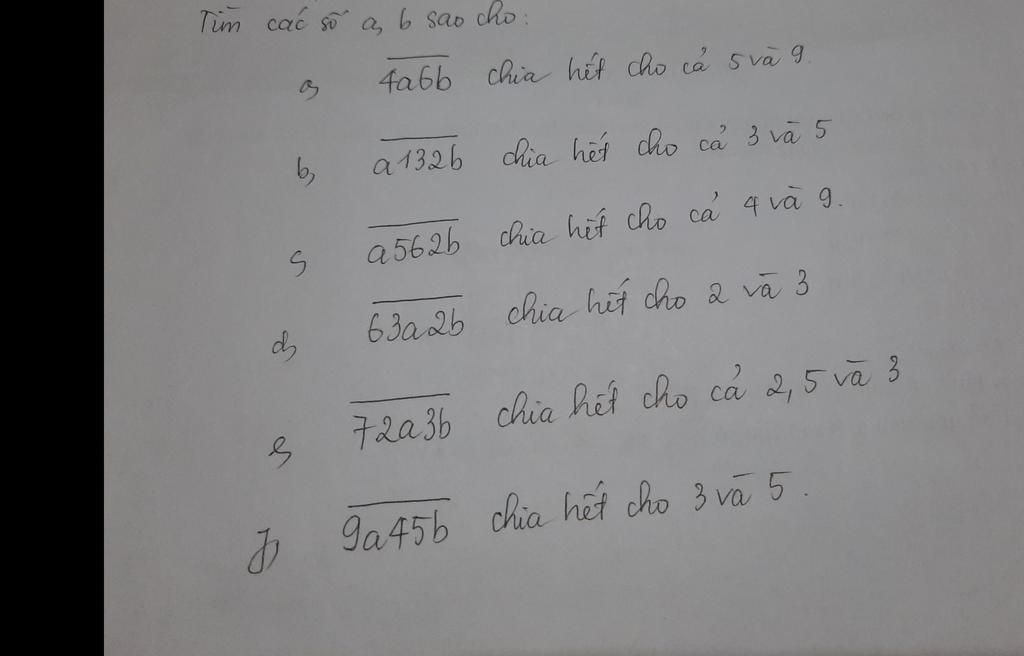 Tìm các số a, b sao cho:
a, 4a6b chia hết cho cả 5 và 9.
b, a132b chia hết cho cả 3 và 5
c, a562b chia hết cho cả 4 và 9.
d, 63a2b chia hết cho 2 và 3
e, 72a3b chia hết cho cả 2, 5 và 3
f, 9a45b chia hết cho 3 và 5.